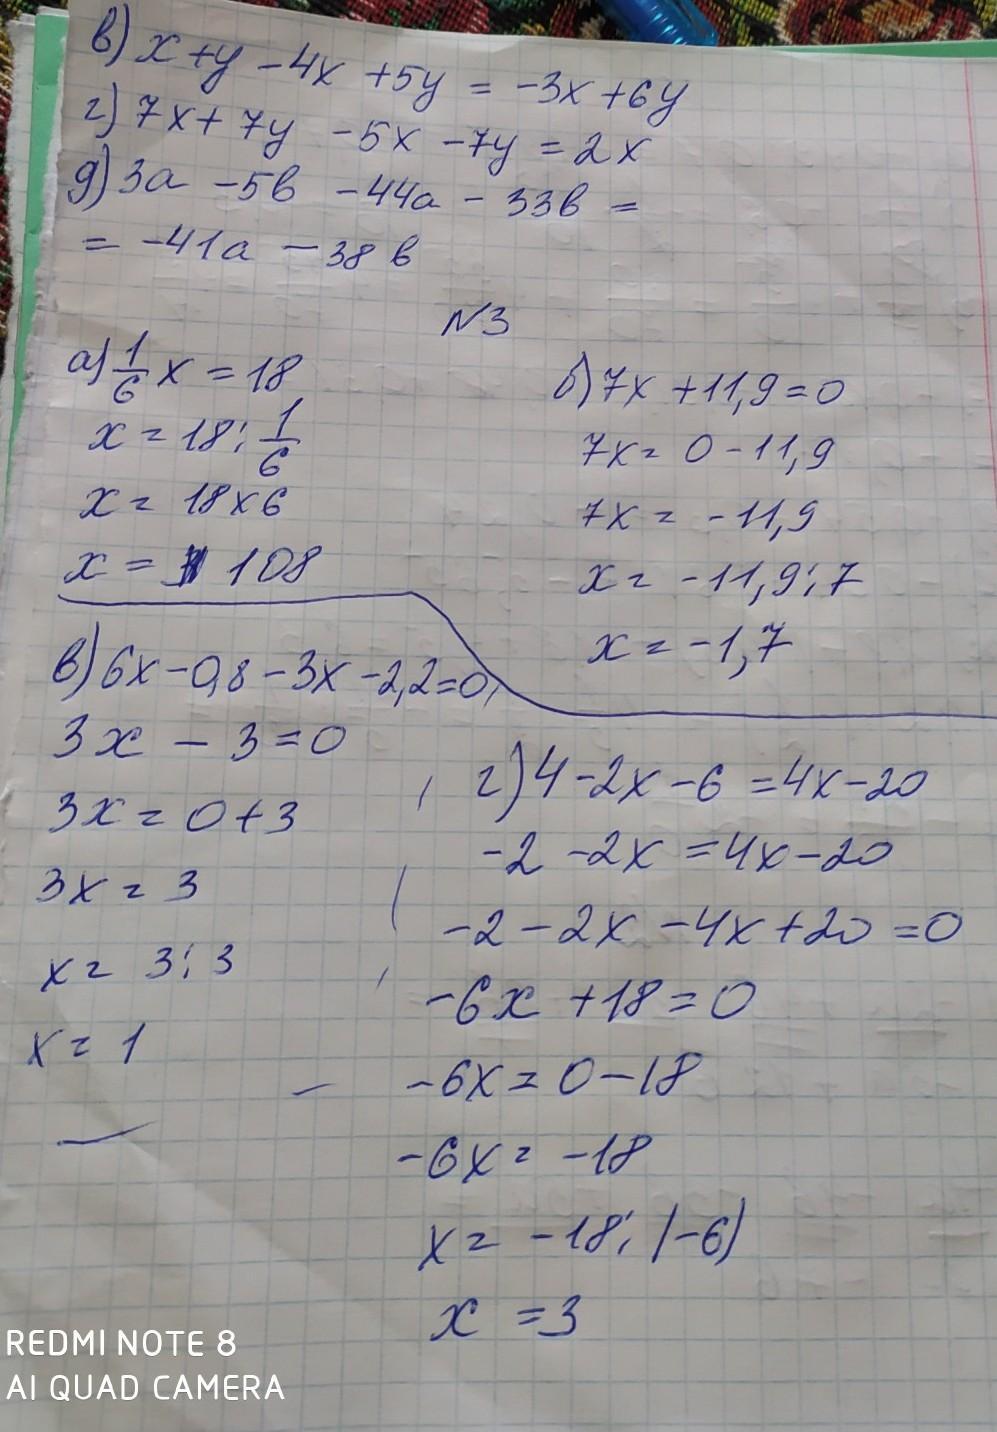 в) x + y - 4x + 5y = -3x + 6y
г) 7x + 7y - 5x - 7y = 2x
д) 3a - 5в - 44a - 33в =
= -41a - 38в
N3
а) 1/6 x = 18
x = 18 : 1/6
x = 18 x 6
x = 108
б) 7x + 11,9 = 0
7x = 0 - 11,9
7x = -11,9
x = -11,9 : 7
x = -1,7
в) 6x - 0,8 - 3x - 2,2 = 0
3x - 3 = 0
3x = 0 + 3
3x = 3
x = 3 : 3
x = 1
г) 4 - 2x - 6 = 4x - 20
-2 - 2x = 4x - 20
-2 - 2x - 4x + 20 = 0
-6x + 18 = 0
-6x = 0 - 18
-6x = -18
x = -18 : (-6)
x = 3
REDMI NOTE 8
AI QUAD CAMERA